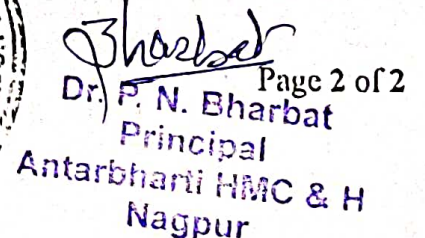 Bharbat
Page 2 of 2
Dr. P. N. Bharbat
Principal
Antarbharti HMC & H
Nagpur